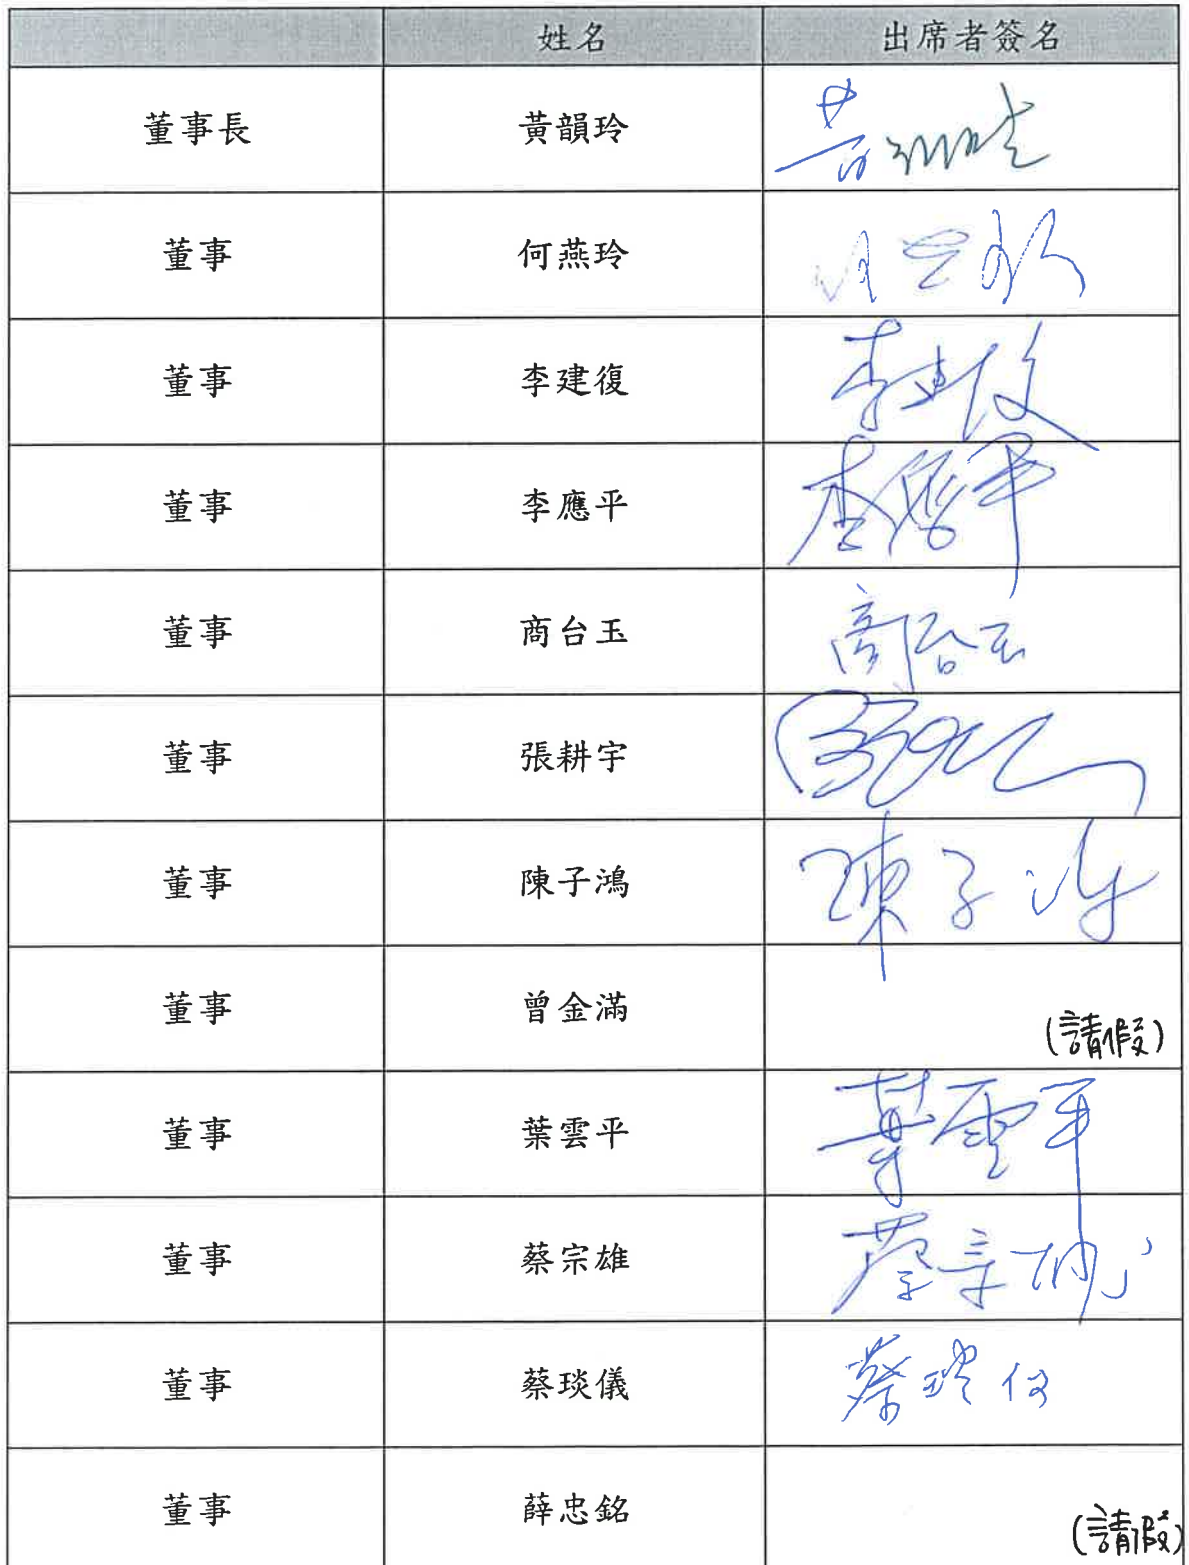 姓名 出席者簽名
董事長 黃韻玲
董事 何燕玲
董事 李建復 李建復
董事 李應平 李應平
董事 商台玉 商台玉
董事 張耕宇
董事 陳子鴻 陳子鴻
董事 曾金滿 (請假)
董事 葉雲平 葉雲平
董事 蔡宗雄 蔡宗雄
董事 蔡琰儀 蔡琰仪
董事 薛忠銘 (請假)